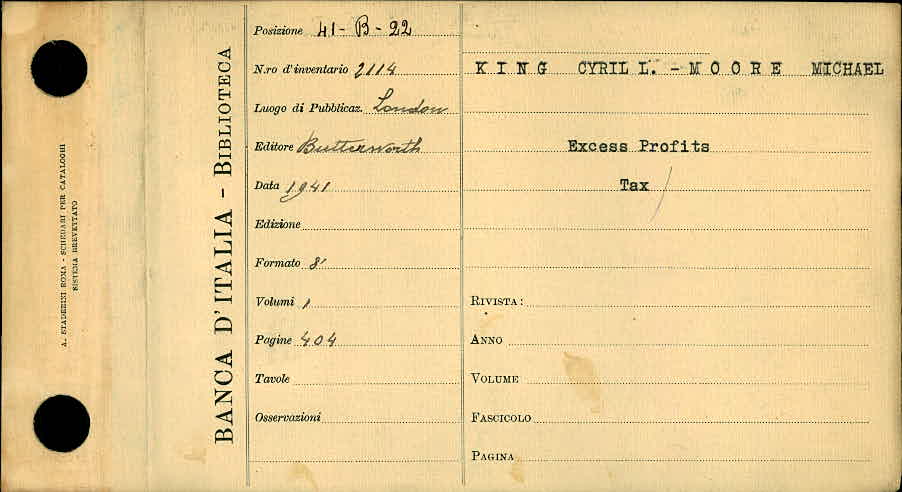 A. STADERINI ROMA - SCHEDARI PER CATALOGHI
SISTEMA BREVETTATO
BANCA D'ITALIA - BIBLIOTECA
Posizione 41-B-22
N.ro d'inventario 2114
Luogo di Pubblicaz. London
Editore Butterworth
Data 1941
Edizione
Formato 8°
Volumi 1
Pagine 404
Tavole
Osservazioni
KING CYRIL L. - MOORE MICHAEL
Excess Profits
Tax /
RIVISTA:
ANNO
VOLUME
FASCICOLO
PAGINA